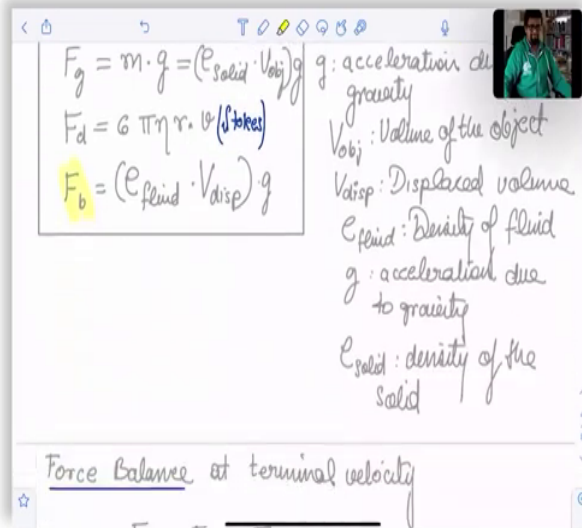 F_g = m · g = (ρ_solid · V_obj) g
F_d = 6 π η r · v (Stokes)
F_b = (ρ_fluid · V_disp) · g
g : acceleration du
gravity
V_obj : Volume of the object
V_disp : Displaced volume
ρ_fluid : Density of fluid
g : acceleration due
to gravity
ρ_solid : density of the
solid
Force Balance at terminal velocity